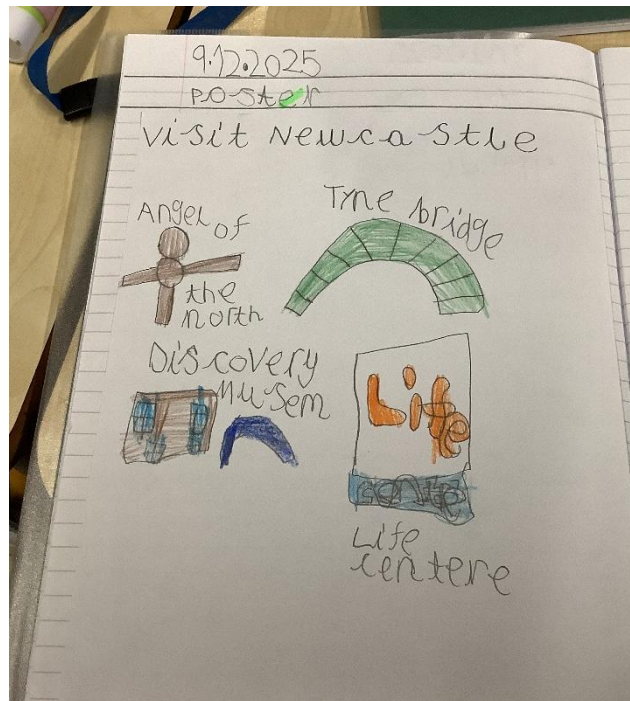 9.12.2025
Poster
Visit Newcastle
Angel of
the
north
Tyne bridge
Discovery
Musem
Life
centre
Life
centere